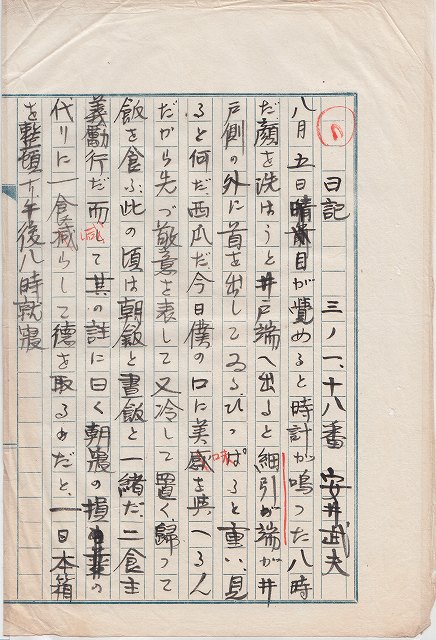 日記　三ノ一、十八番　安井武夫
八月五日晴　目が覚めると時計が鳴つた八時
だ顔を洗はうと井戸端へ出ると細引の端が井
戸側の外に首を出してゐるひつぱると重い、見
ると何だ西瓜だ今日僕の口に美感を與へるん
味
だから先づ敬意を表して又冷して置く歸つて
飯を食ふ、此の頃は朝飯と晝飯と一緒だ、二食主
義勵行だ而して其の註に曰く朝寢の損の
減
代りに一食減らして德を取るのだと、一日本箱
を整頓す午後八時就寢